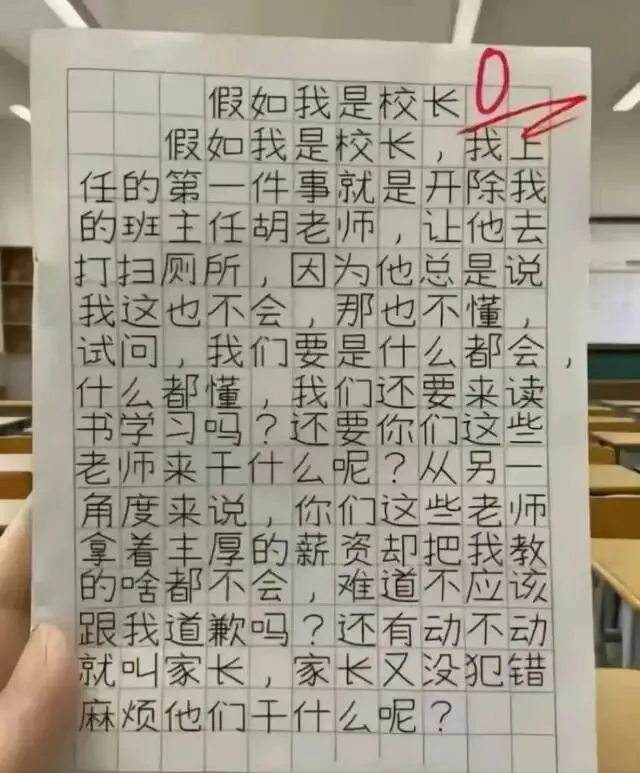 假如我是校长 0
假如我是校长，我上
任的第一件事就是开除我
的班主任胡老师，让他去
打扫厕所，因为他总是说
我这也不会，那也不懂，
试问，我们要是什么都会，
什么都懂，我们还要来读
书学习吗？还要你们这些
老师来干什么呢？从另一
角度来说，你们这些老师
拿着丰厚的薪资却把我教
的啥都不会，难道不应该
跟我道歉吗？还有动不动
就叫家长，家长又没犯错
麻烦他们干什么呢？